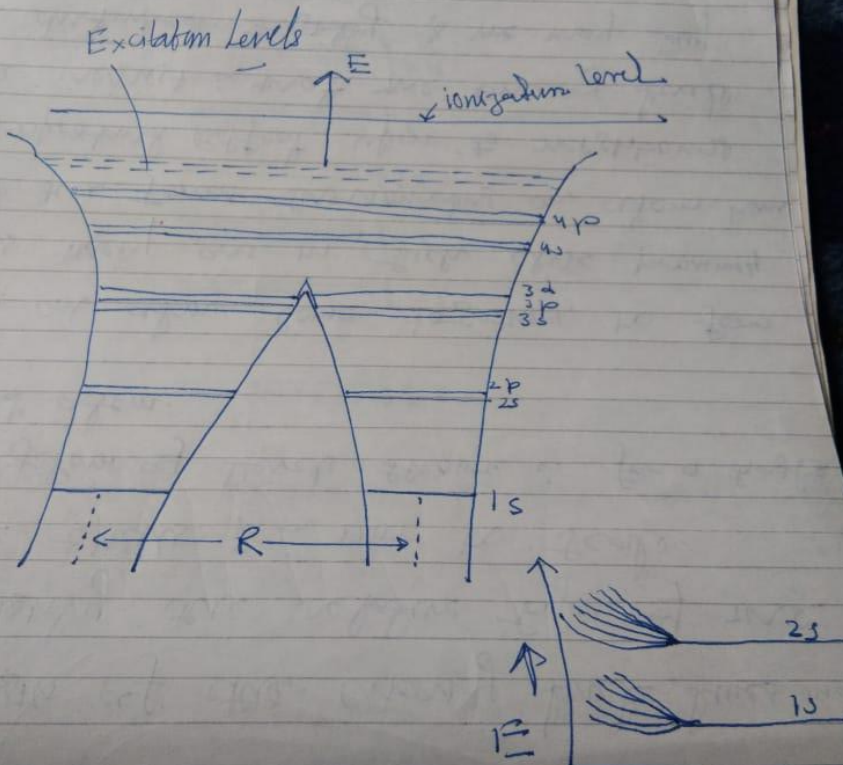 Excitation Levels
E
ionization level
4p
4s
3d
3p
3s
2p
2s
1s
R
2s
1s
E